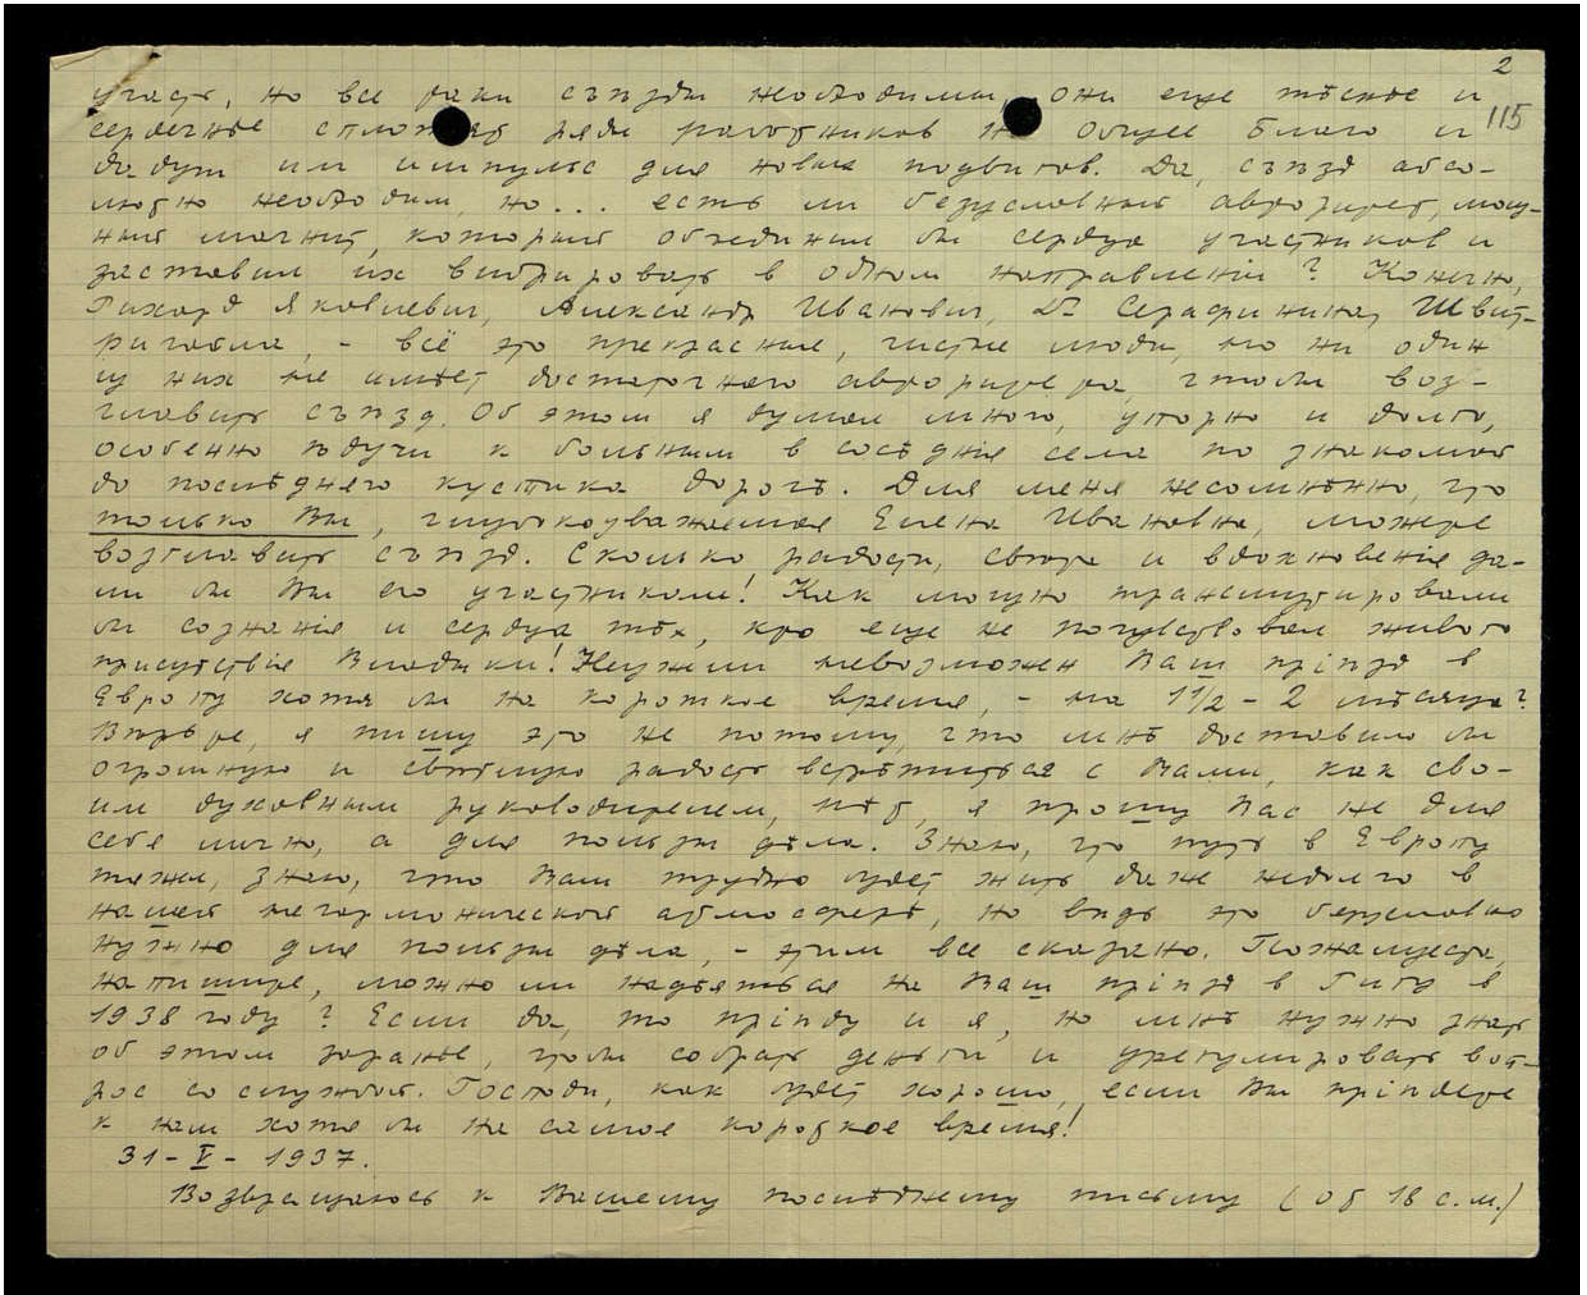 2
115
участь, но все таки съѣзды необходимы, они еще тѣснѣе и
сердечнѣе сплотят ряды работников на Общее Благо и
дадут им импульс для новых подвигов. Да, съѣзд абсо-
лютно необходим, но... есть ли безусловный авторитет, мощ-
ный магнит, который объединил бы сердца участников и
заставил их вибрировать в одном направленіи? Конечно,
Рихард Яковлевич, Александр Иванович, Dr Серафинина, Швит-
ригайла, - всё это прекрасные, чистые люди, но ни один
из них не имѣет достаточнаго авторитета, чтобы воз-
главить съѣзд. Об этом я думал много, упорно и долго,
особенно ѣдучи к больным в сосѣднія села по знакомой
до послѣдняго кустика дорогѣ. Для меня несомнѣнно, что
только Вы, глубокоуважаемая Елена Ивановна, можете
возглавить съѣзд. Сколько радости, свѣта и вдохновенія да-
ли бы Вы его участникам! Как мощно трансмутировали
бы сознанія и сердца тѣх, кто еще не почувствовал живого
присутствія Владыки! Неужели невозможен Ваш пріѣзд в
Европу хотя бы на короткое время, - на 1 1/2 - 2 мѣсяца?
Вѣрьте, я пишу это не потому, что мнѣ доставило бы
огромную и свѣтлую радость встрѣтиться с Вами, как сво-
им духовным руководителем, нѣт, я прошу Вас не для
себя лично, а для пользы дѣла. Знаю, что путь в Европу
тяжел, знаю, что Вам трудно будет жить даже недолго в
нашей негармонической атмосферѣ, но вѣдь это безусловно
нужно для пользы дѣла, - этим все сказано. Пожалуйста,
напишите, можно ли надѣяться на Ваш пріѣзд в Ригу в
1938 году? Если да, то пріѣду и я, но мнѣ нужно знать
об этом заранѣе, чтобы собрать деньги и урегулировать воп-
рос со службой. Господи, как будет хорошо, если Вы пріѣдете
к нам хотя бы на самое короткое время!
31 - V - 1937.
Возвращаюсь к Вашему послѣднему письму (от 18 с.м.)